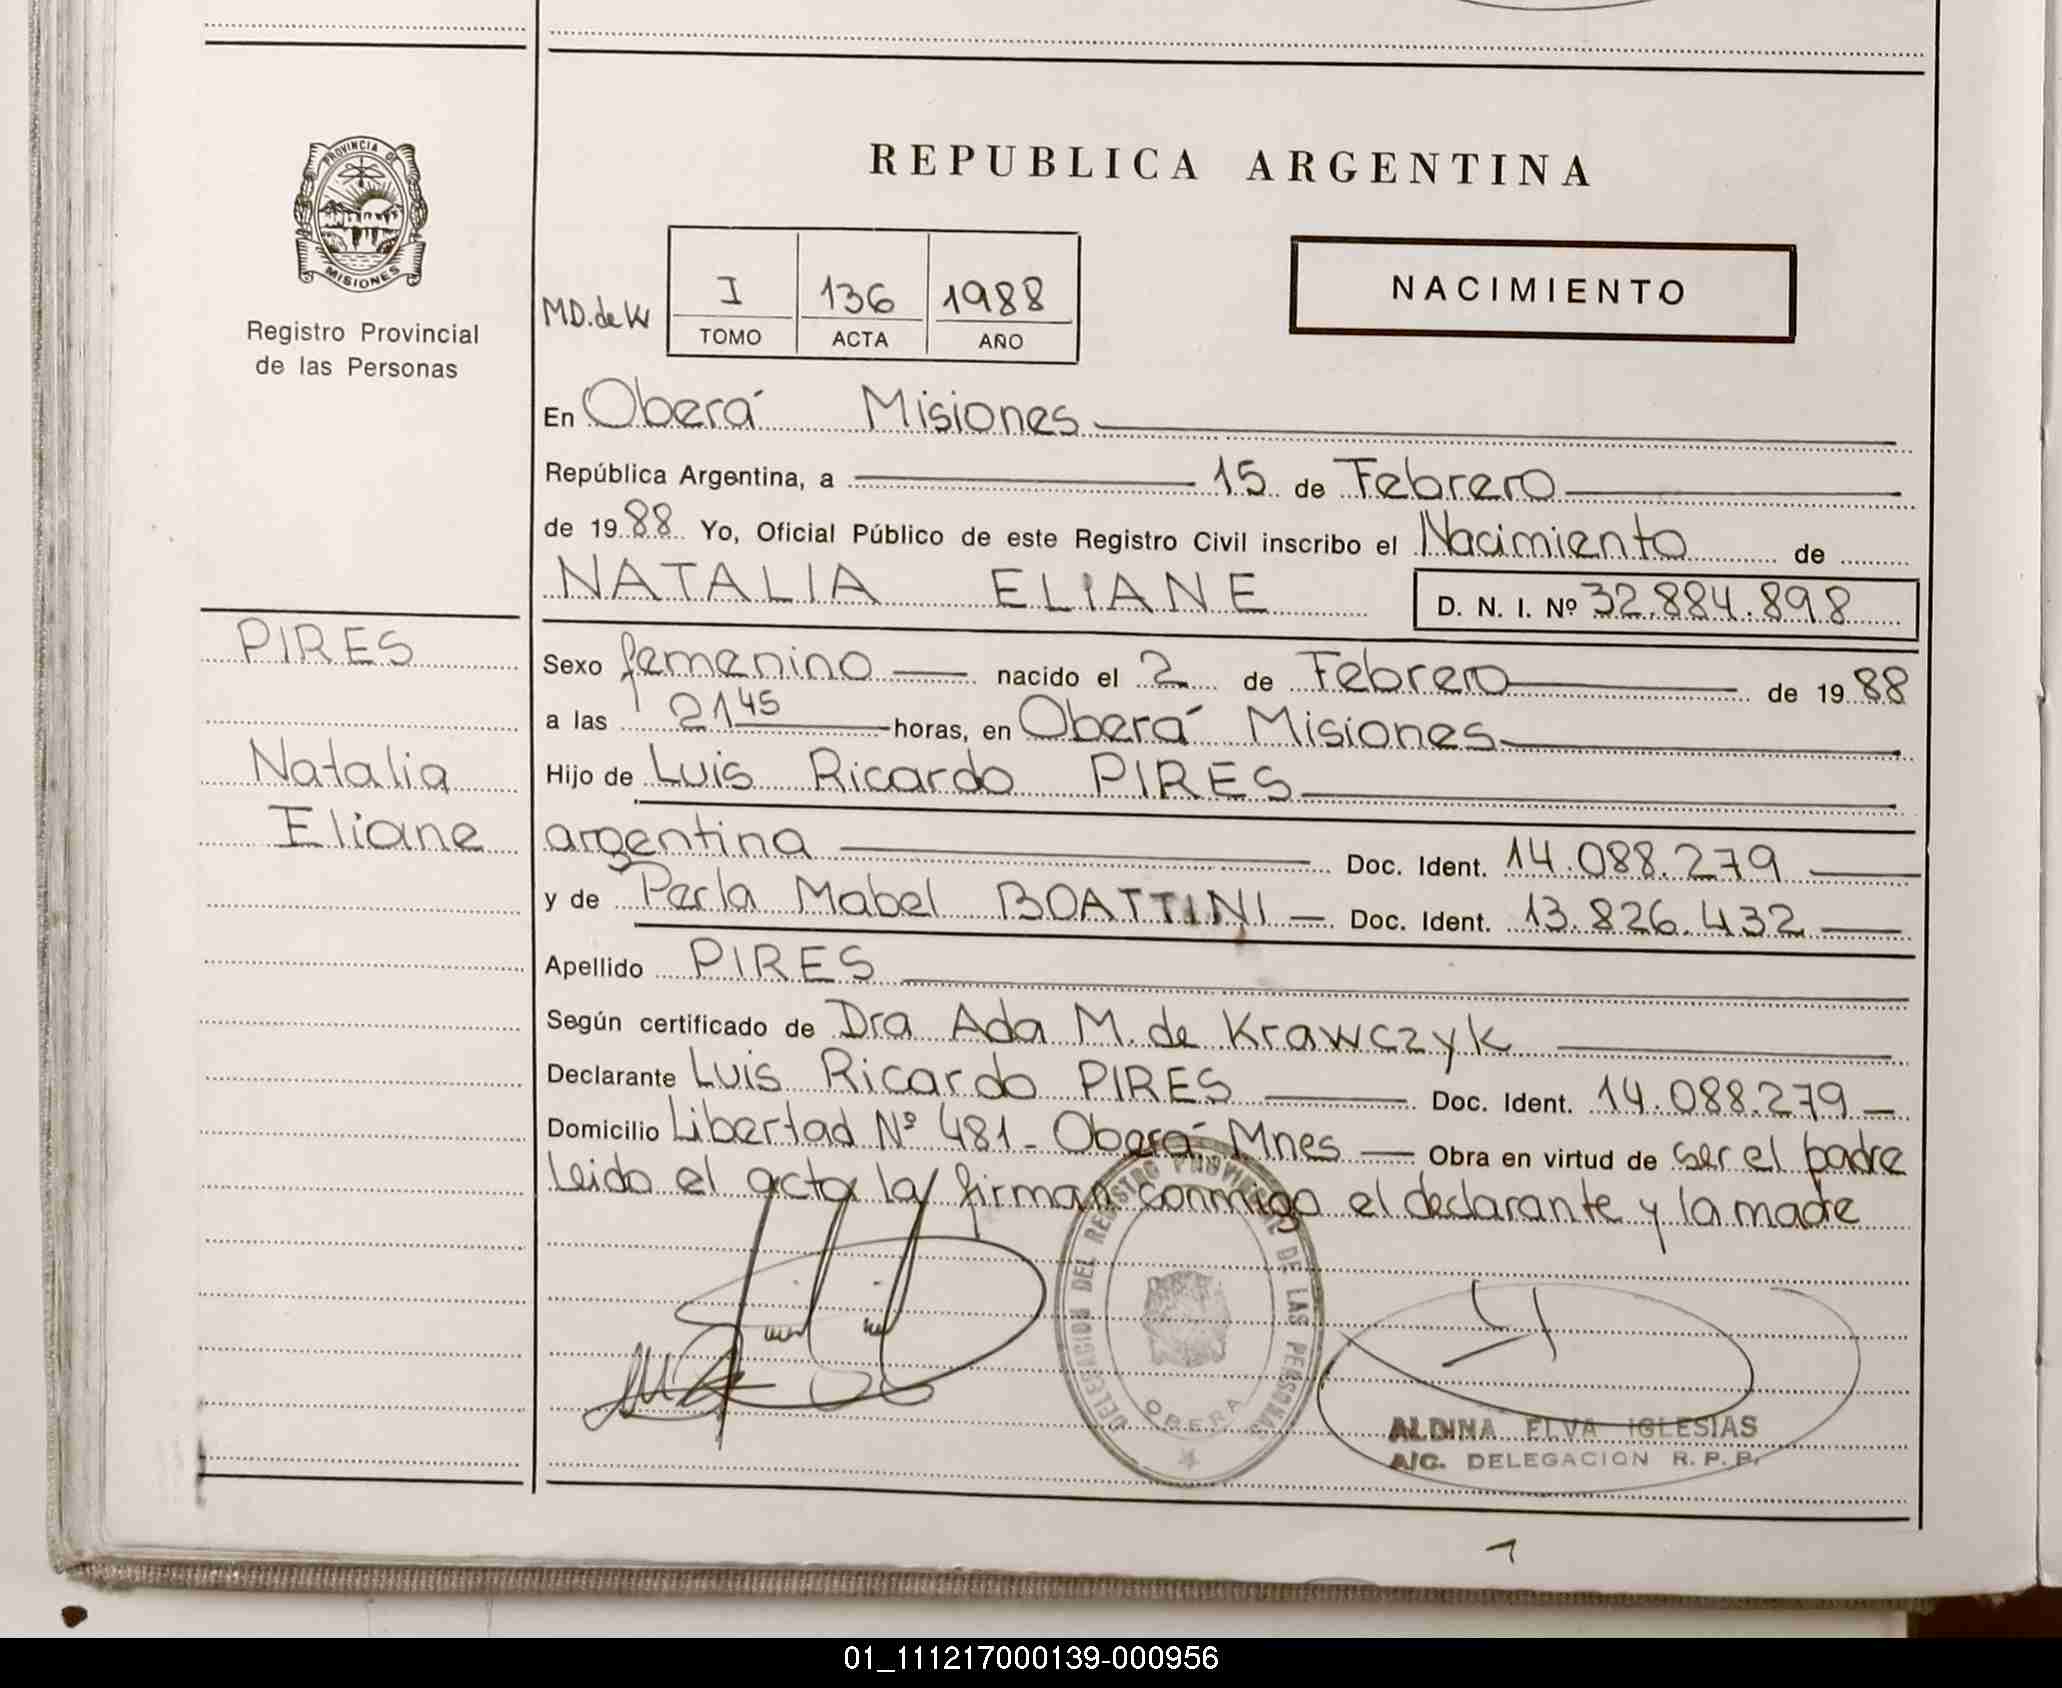 PROVINCIA DE
MISIONES
Registro Provincial
de las Personas
REPUBLICA ARGENTINA
NACIMIENTO
M.D. de Kr
I 136 1988
TOMO ACTA AÑO
En Oberá Misiones
República Argentina, a 15 de Febrero
de 1988 Yo, Oficial Público de este Registro Civil inscribo el Nacimiento de
NATALIA ELIANE D. N. I. Nº 32.884.898
PIRES
Natalia
Eliane
Sexo femenino nacido el 2 de Febrero de 1988
a las 21 45 horas, en Oberá Misiones
Hijo de Luis Ricardo PIRES
argentina Doc. Ident. 14.088.279
y de Perla Mabel BOATTINI Doc. Ident. 13.826.432
Apellido PIRES
Según certificado de Dra Ada M. de Krawczyk
Declarante Luis Ricardo PIRES Doc. Ident. 14.088.279
Domicilio Libertad Nº 481 - Oberá Mnes Obra en virtud de ser el padre
Leido el acta la firman conmigo el declarante y la madre
DELEGACION DEL REGISTRO PROVINCIAL DE LAS PERSONAS
OBERA
ALDINA ELVA IGLESIAS
A/C. DELEGACION R. P. P.
01_111217000139-000956